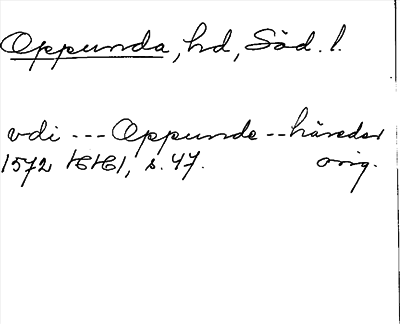 Oppunda, hd, Söd. l.
vdi --- Oppunde -- häreder
1572 HH 1, s. 47. orig.